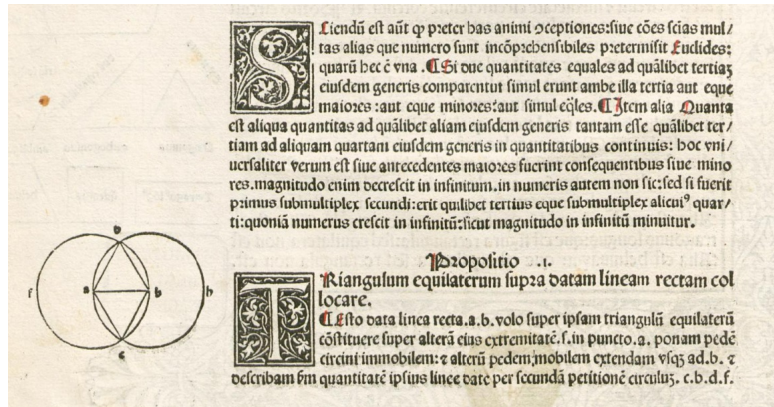 Sciendũ est aũt ꝙ preter has animi ↄceptiones:siue cões sciẽas mul/
tas alias que numero sunt incõprehensibiles pretermisit Euclides:
quarũ hec ẽ vna .¶Si due quantitates equales ad quãlibet tertiaꝫ
eiusdem generis comparentur simul erunt ambe illa tertia aut eque
maiores:aut eque minores:aut simul eq̃les.¶Item alia Quanta
est aliqua quantitas ad quãlibet aliam eiusdem generis tantam esse quãlibet ter/
tiam ad aliquam quartam eiusdem generis in quantitatibus continuis: hoc vni/
uersaliter verum est siue antecedentes maiores fuerint consequentibus siue mino
res.magnitudo enim decrescit in infinitum.in numeris autem non sic:sed si fuerit
primus submultiplex secundi:erit quilibet tertius eque submultiplex alicuiꝰ quar/
ti:quoniã numerus crescit in infinitũ:sicut magnitudo in infinitũ minuitur.
Propositio .1.
Triangulum equilaterum supra datam lineam rectam col
locare.
¶Esto data linea recta.a.b.volo super ipsam triangulũ equilaterũ
cõstituere super alterã eius extremitatẽ.s.in puncto.a. ponam pedẽ
circini immobilem: ⁊ alterũ pedem mobilem extendam vsqꝫ ad.b. ⁊
describam ẜm quantitatẽ ipsius linee date per secundã petitionẽ circuluꝫ. c.b.d.f.
d
f a b h
c